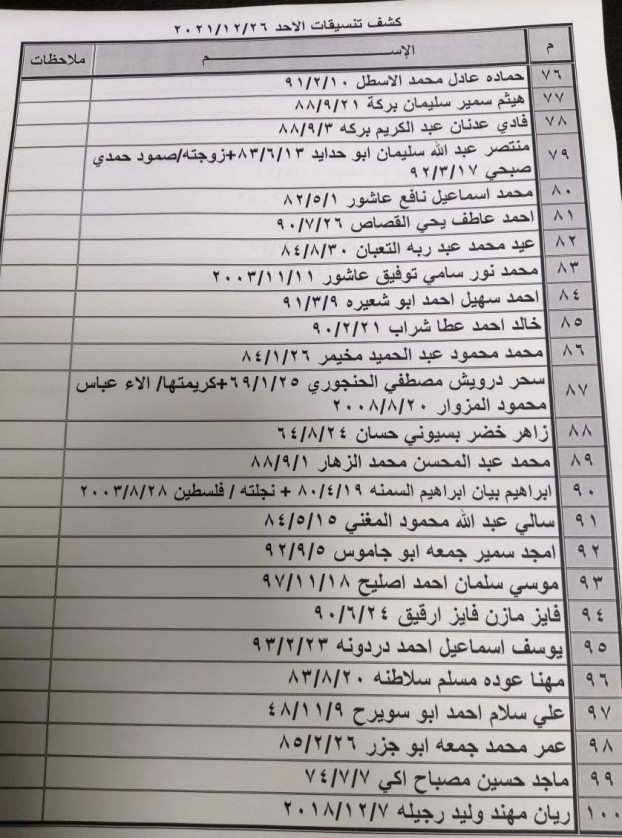 كشف تنسيقات الاحد ٢٠٢١/١٢/٢٦
م الإســـــــــم ملاحظات
٧٦ حماده عادل محمد الاسطل ٩١/٢/١٠
٧٧ هيثم سمير سليمان بركة ٨٨/٩/٢١
٧٨ فادي عدنان عبد الكريم بركه ٨٨/٩/٣
٧٩ منتصر عبد الله سليمان ابو حدايد ٨٣/٦/١٣+زوجته/صمود حمدي
صبحي ٩٢/٣/١٧
٨٠ محمد اسماعيل نافع عاشور ٨٢/٥/١
٨١ احمد عاطف يحي القصاص ٩٠/٧/٢٦
٨٢ عيد محمد عبد ربه التعبان ٨٤/٨/٣٠
٨٣ محمد نور سامي توفيق عاشور ٢٠٠٣/١١/١١
٨٤ احمد سهيل احمد ابو شعيره ٩١/٣/٩
٨٥ خالد احمد عطا شراب ٩٠/٢/٢١
٨٦ محمد محمود عبد الحميد مخيمر ٨٤/١/٢٦
٨٧ سحر درويش مصطفي الحنجوري ٦٩/١/٢٥+كريمتها/ الاء عباس
محمود المزوار ٢٠٠٨/٨/٢٠
٨٨ زاهر خضر بسيوني حسان ٦٤/٨/٢٤
٨٩ محمد عبد المحسن محمد الزهار ٨٨/٩/١
٩٠ ابراهيم بيان ابراهيم السمنه ٨٠/٤/١٩ + نجلته / فلسطين ٢٠٠٣/٨/٢٨
٩١ سالي عبد الله محمود المغني ٨٤/٥/١٥
٩٢ امجد سمير جمعه ابو جاموس ٩٢/٩/٥
٩٣ موسي سلمان احمد اصليح ٩٧/١١/١٨
٩٤ فايز مازن فايز ارقيق ٩٠/٦/٢٤
٩٥ يوسف اسماعيل احمد دردونه ٩٣/٢/٢٣
٩٦ مهنا عوده مسلم سلاطنه ٨٣/٨/٢٠
٩٧ علي سلام احمد ابو سويرح ٤٨/١١/٩
٩٨ عمر محمد جمعه ابو جزر ٨٥/٢/٢٦
٩٩ ماجد حسين مصباح اكي ٧٤/٧/٧
١٠٠ ريان مهند وليد رجيله ٢٠١٨/١٢/٧